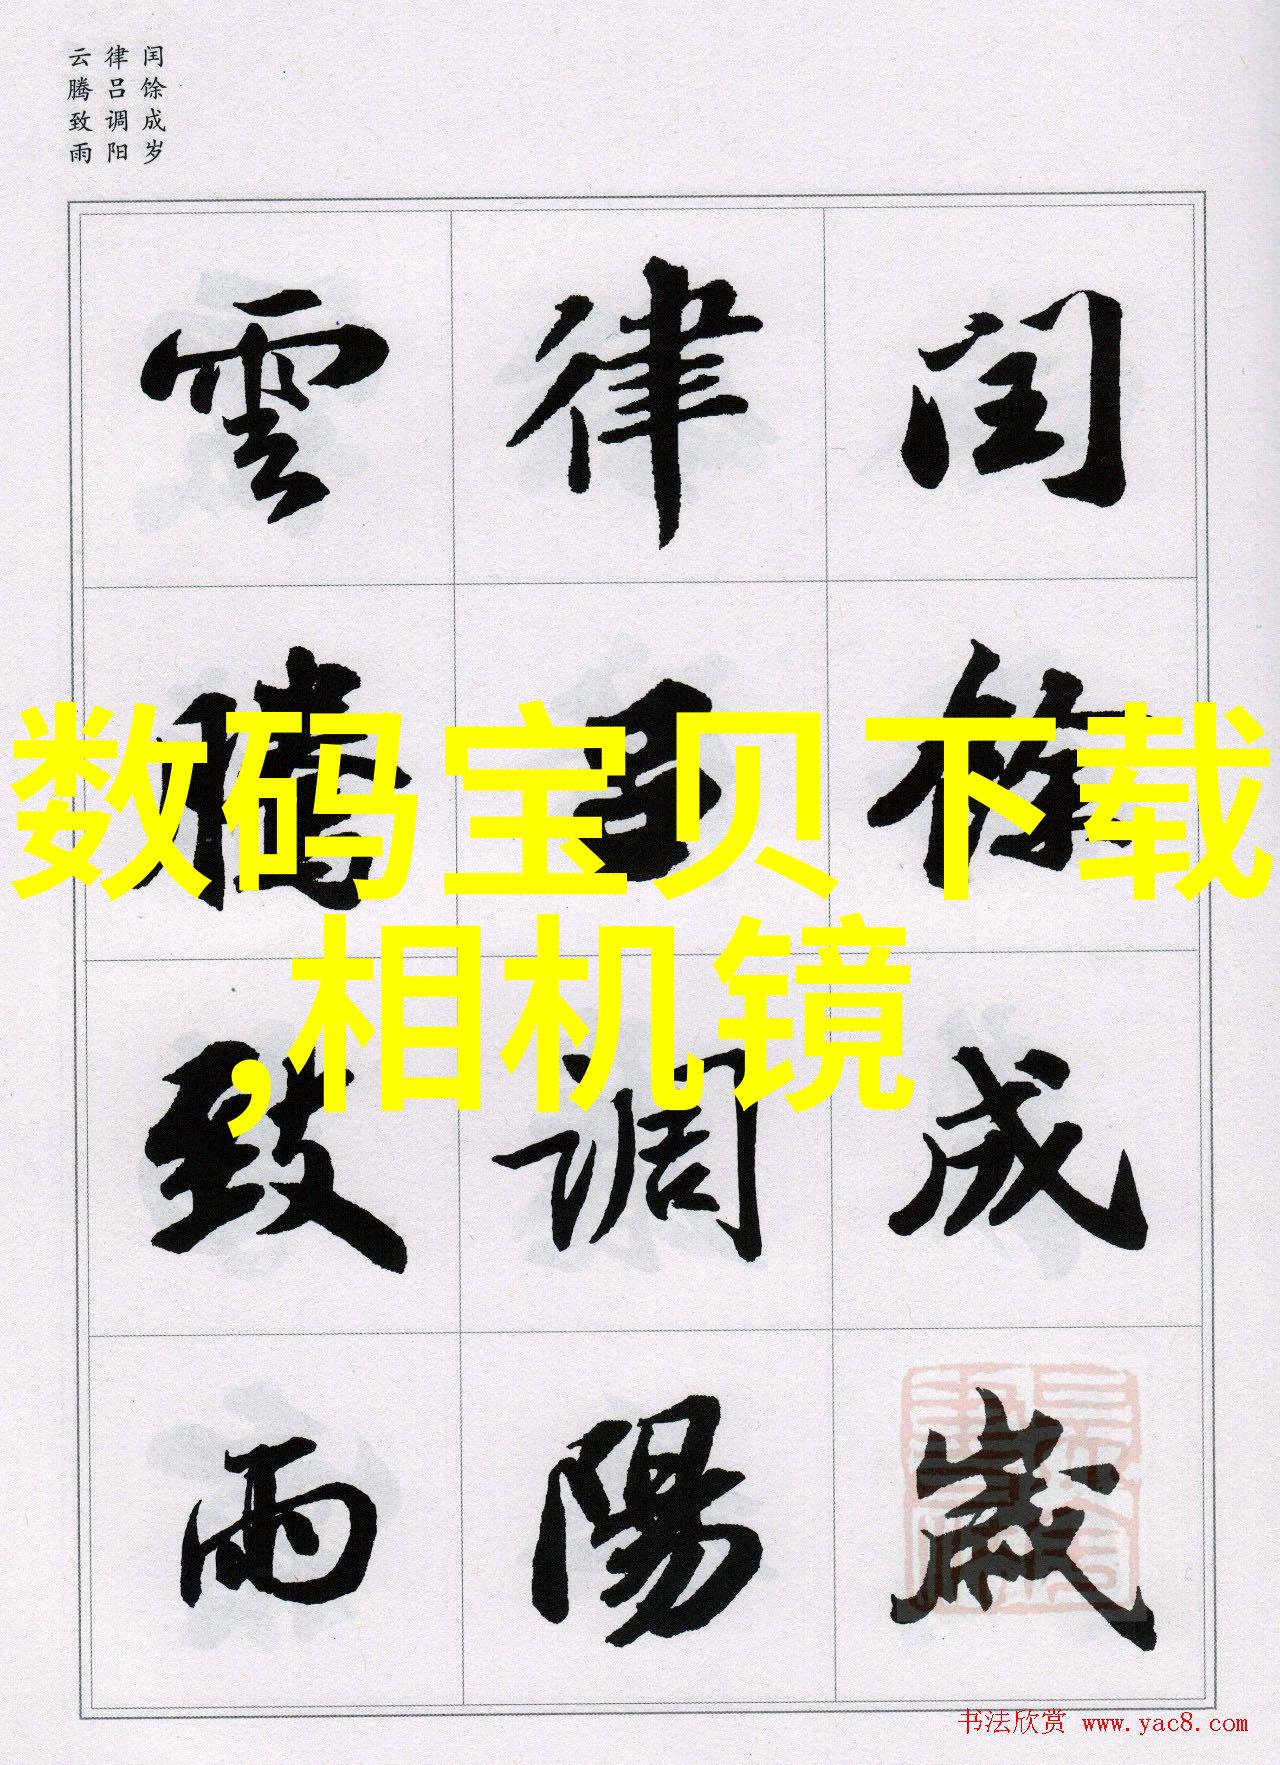 闰馀成岁
律吕调阳
云腾致雨
数码宝贝下载
,相机镜
闰馀成歲
律吕调陽
雲騰致雨
书法欣赏 www.yac8.com